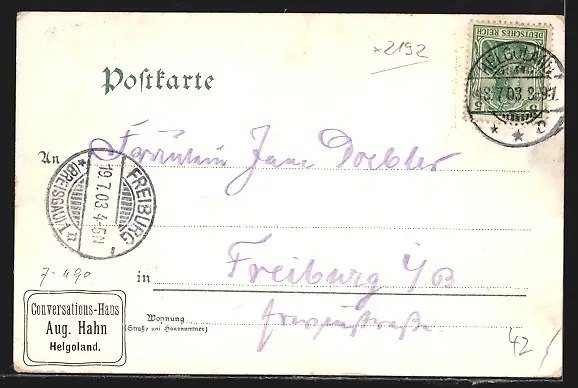 x2192
DEUTSCHES REICH
5 5
HELGOLAND
18.7.03. 8-9V.
* * c
Postkarte
An Fräulein Jane Doebler
FREIBURG
19.7.03.4-5N
*(BREISGAU)1*
in Freiburg i/B
Wohnung
(Straße und Hausnummer)
Conversations-Haus
Aug. Hahn
Helgoland.
42